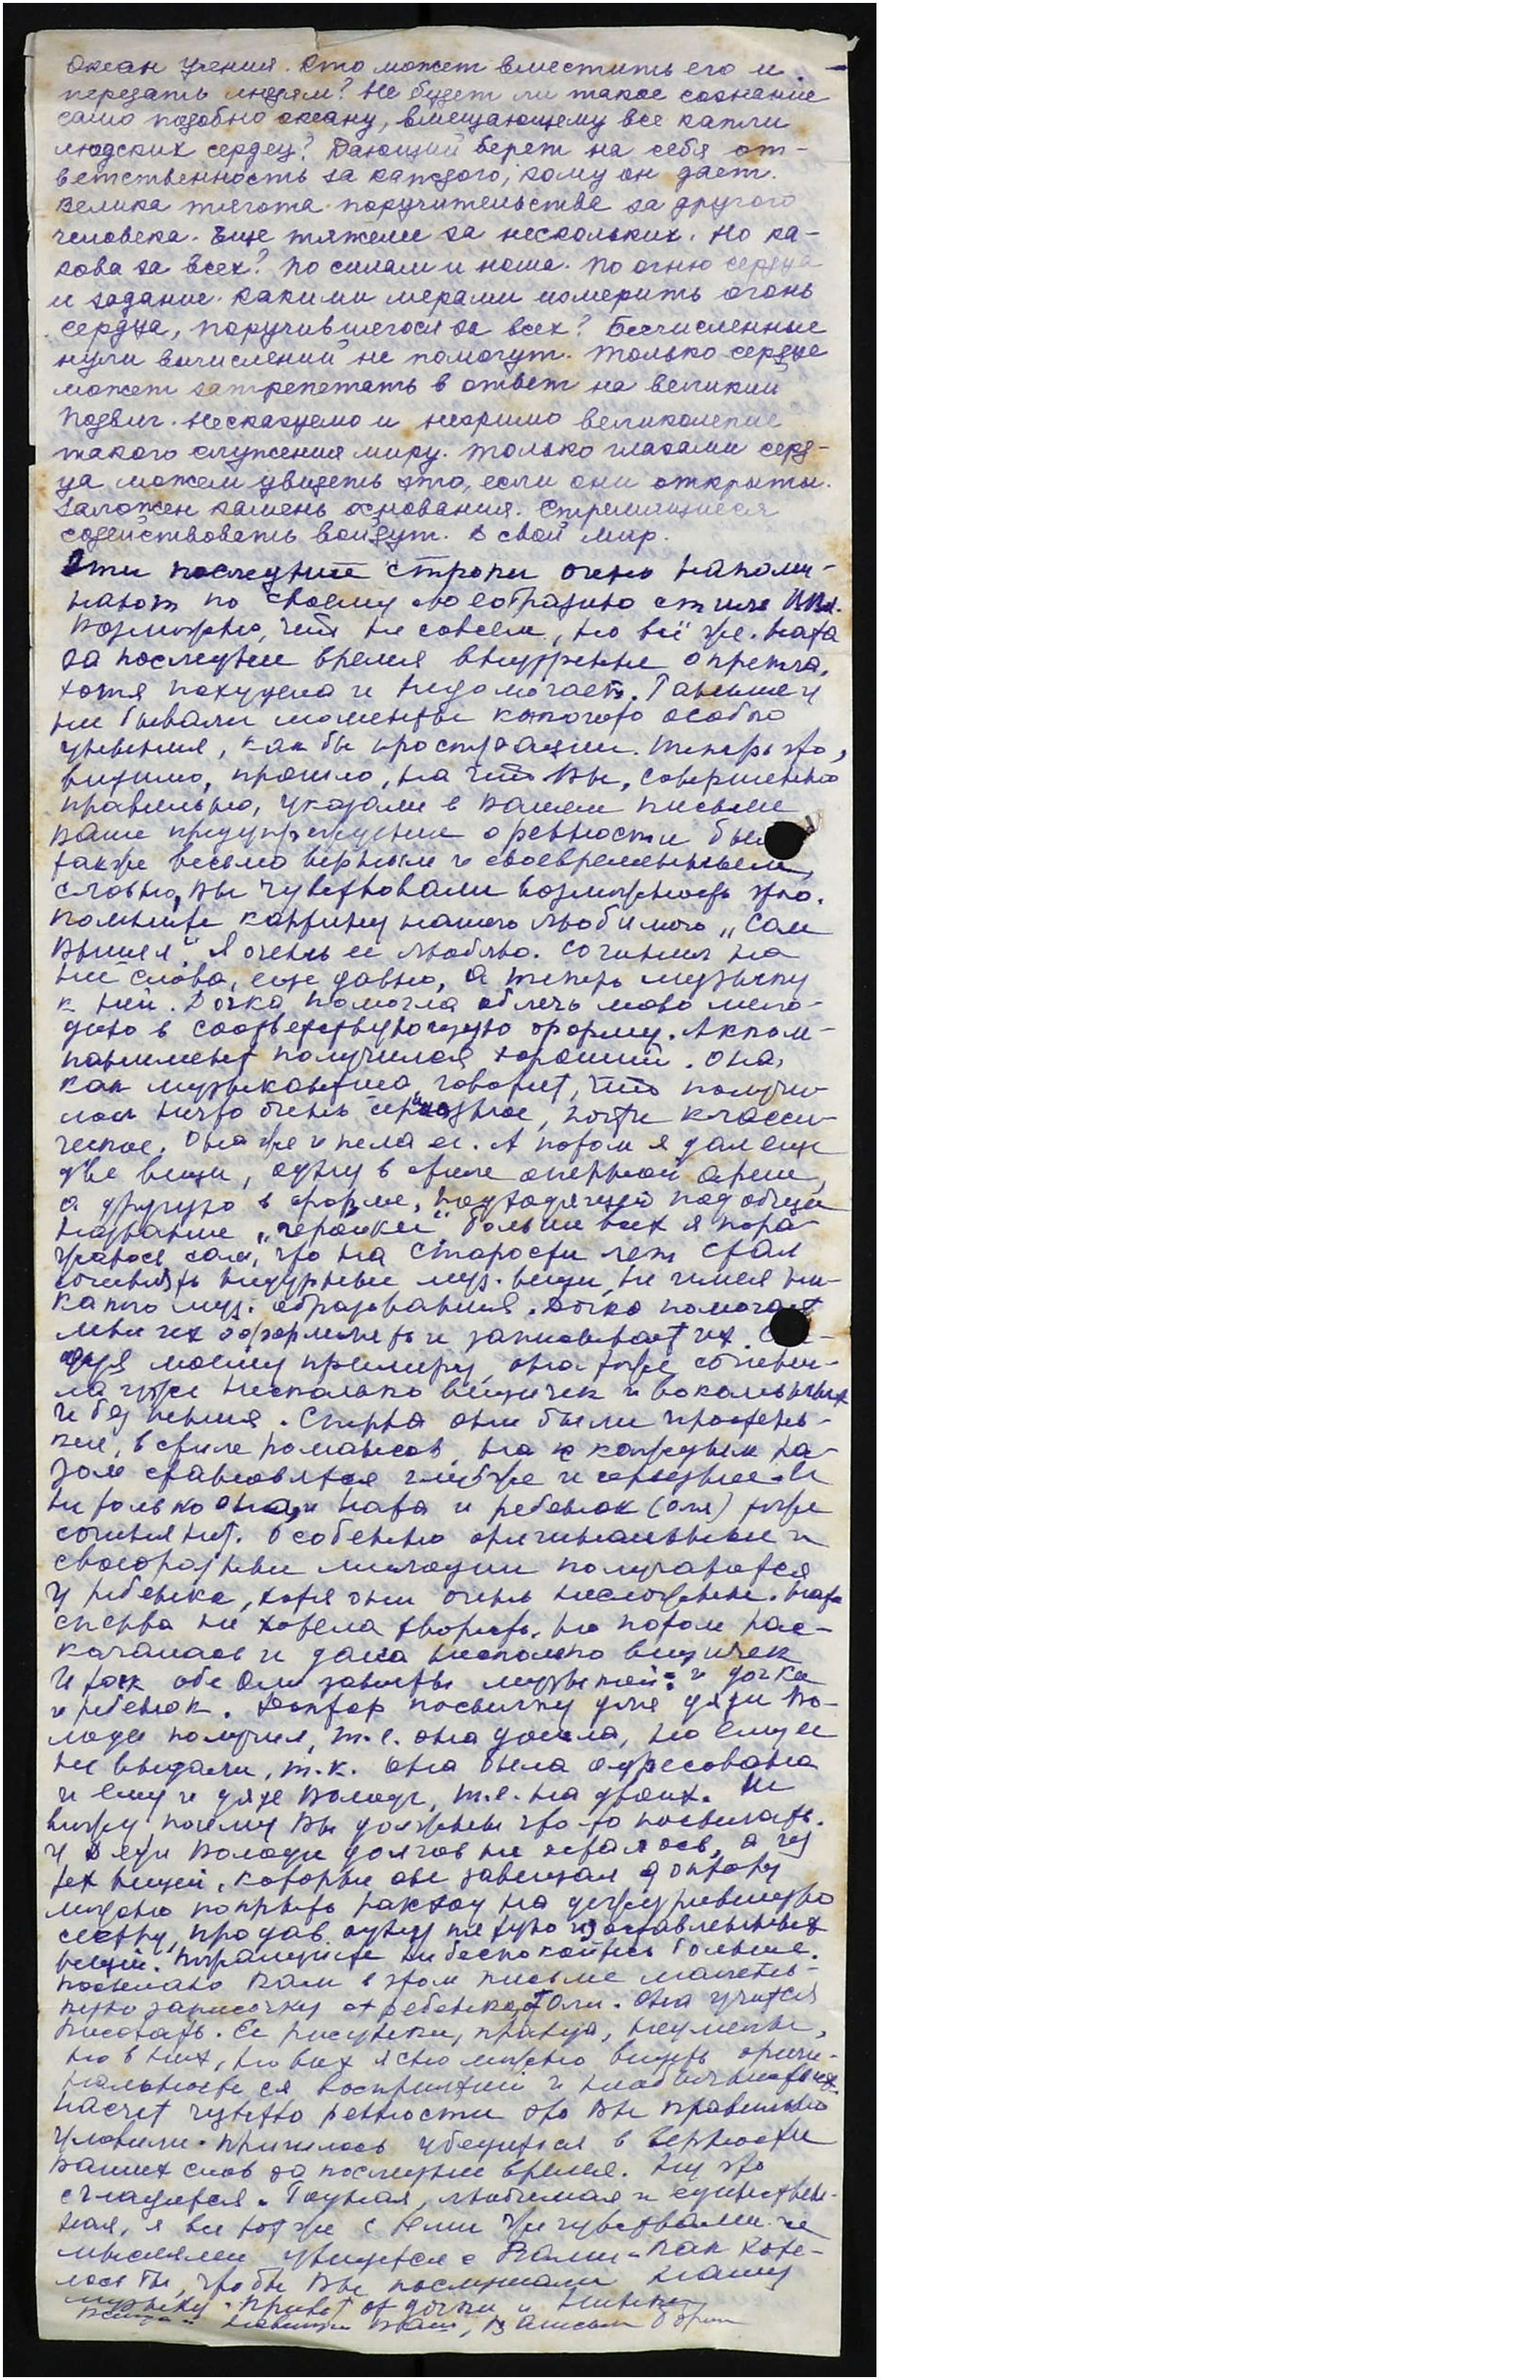 Океан Учения. Кто может вместить его и
передать людям? Не будет ли такое сознание
само подобно океану, вмещающему все капли
людских сердец? Дающий берет на себя от-
ветственность за каждого, кому он дает.
Велика тягота поручительства за другого
человека. Еще тяжелее за нескольких. Но ка-
кова за всех? По силам и ноша. По огню сердца
и задание. Какими мерами измерить огонь
сердца, поручившегося за всех? Бесчисленные
нули вычислений не помогут. Только сердце
может затрепетать в ответ на великий
подвиг. Несказуемо и незримо великолепие
такого служения миру. Только глазами серд-
ца можем увидеть это, если они открыты.
Заложен камень основания. Стремящиеся
содействовать войдут. В свой мир.
Эти последние строки очень напоми-
нают по своему своеобразию стиль
Возможно, что не совсем, но всё же. Ната
за последнее время внутренне окрепла,
хотя похудела и недомогает. Раньше у
нее бывали моменты какого-то особого
уныния, как бы прострации. Теперь это,
видимо, прошло, на что Вы, совершенно
правильно, указали в Вашем письме
Ваше предупреждение о ревности было
также весьма верным и своевременным,
словно, Вы чувствовали возможность этого.
Помните картину нашего любимого „Сам
вышел". Я очень ее люблю. Сочинил на
неё слова, еще давно, а теперь музыку
к ней. Дочка помогла облечь мою мело-
дию в соответствующую форму. Акком-
панимент получился хороший. Она,
как музыкантша, говорит, что получи-
лось нечто очень серьезное, почти класси-
ческое. Она же и пела ее. А потом я дал еще
две вещи, одну в стиле оперной арии,
а другую в форме, подходящей под общее
название „героики". Больше всех я пора-
жаюсь сам, что на старости лет стал
сочинять недурные муз. вещи, не имея ни-
какого муз. образования. Дочка помогает
мне их оформлять и записывает их. Сле-
дуя моему примеру, она тоже сочини-
ла уже несколько вещичек и вокальных
и без пения. Сперва они были простень-
кие, в стиле романсов, но с каждым ра-
зом становятся глубже и серьезнее. И
не только она, и Ната и ребенок (Оля) тоже
сочиняют. Особенно оригинальные и
своеобразные мелодии получаются
у ребенка, хотя они очень несложные. Ната
сперва не хотела творить, но потом рас-
качалась и дала несколько вещичек
И так обе они заняты музыкой: и дочка
и ребенок. Доктор посылку для дяди Во-
лоди получил, т.е. она дошла, но ему ее
не выдали, т.к. она была адресована
и ему и дяде Володе, т.е. на двоих. Не
вижу почему Вы должны что-то посылать.
У дяди Володи долгов не осталось, а из
тех вещей, которые он завещал доктору
можно покрыть расход на дежурившую
сестру, продав одну из оставленных
вещей. Пожалуйста не беспокойтесь больше.
Посылаю Вам в этом письме малень-
кую записочку от ребенка, от Оли. Она учится
рисовать. Ее рисунки, правда, неумелые,
но в них, во всех ясно можно видеть ориги-
нальность ея восприятий и
Насчет чувства ревности это Вы правильно
уловили. Пришлось убедиться в верности
Ваших слов за последнее время. Ну это
сгладится. Родная, любимая и единствен-
ная, я все тот же с теми же чувствами и
мыслями увидеться с Вами. Как хоте-
лось бы, чтобы Вы послушали нашу
музыку. Привет от дочки и
Ваш, Борис